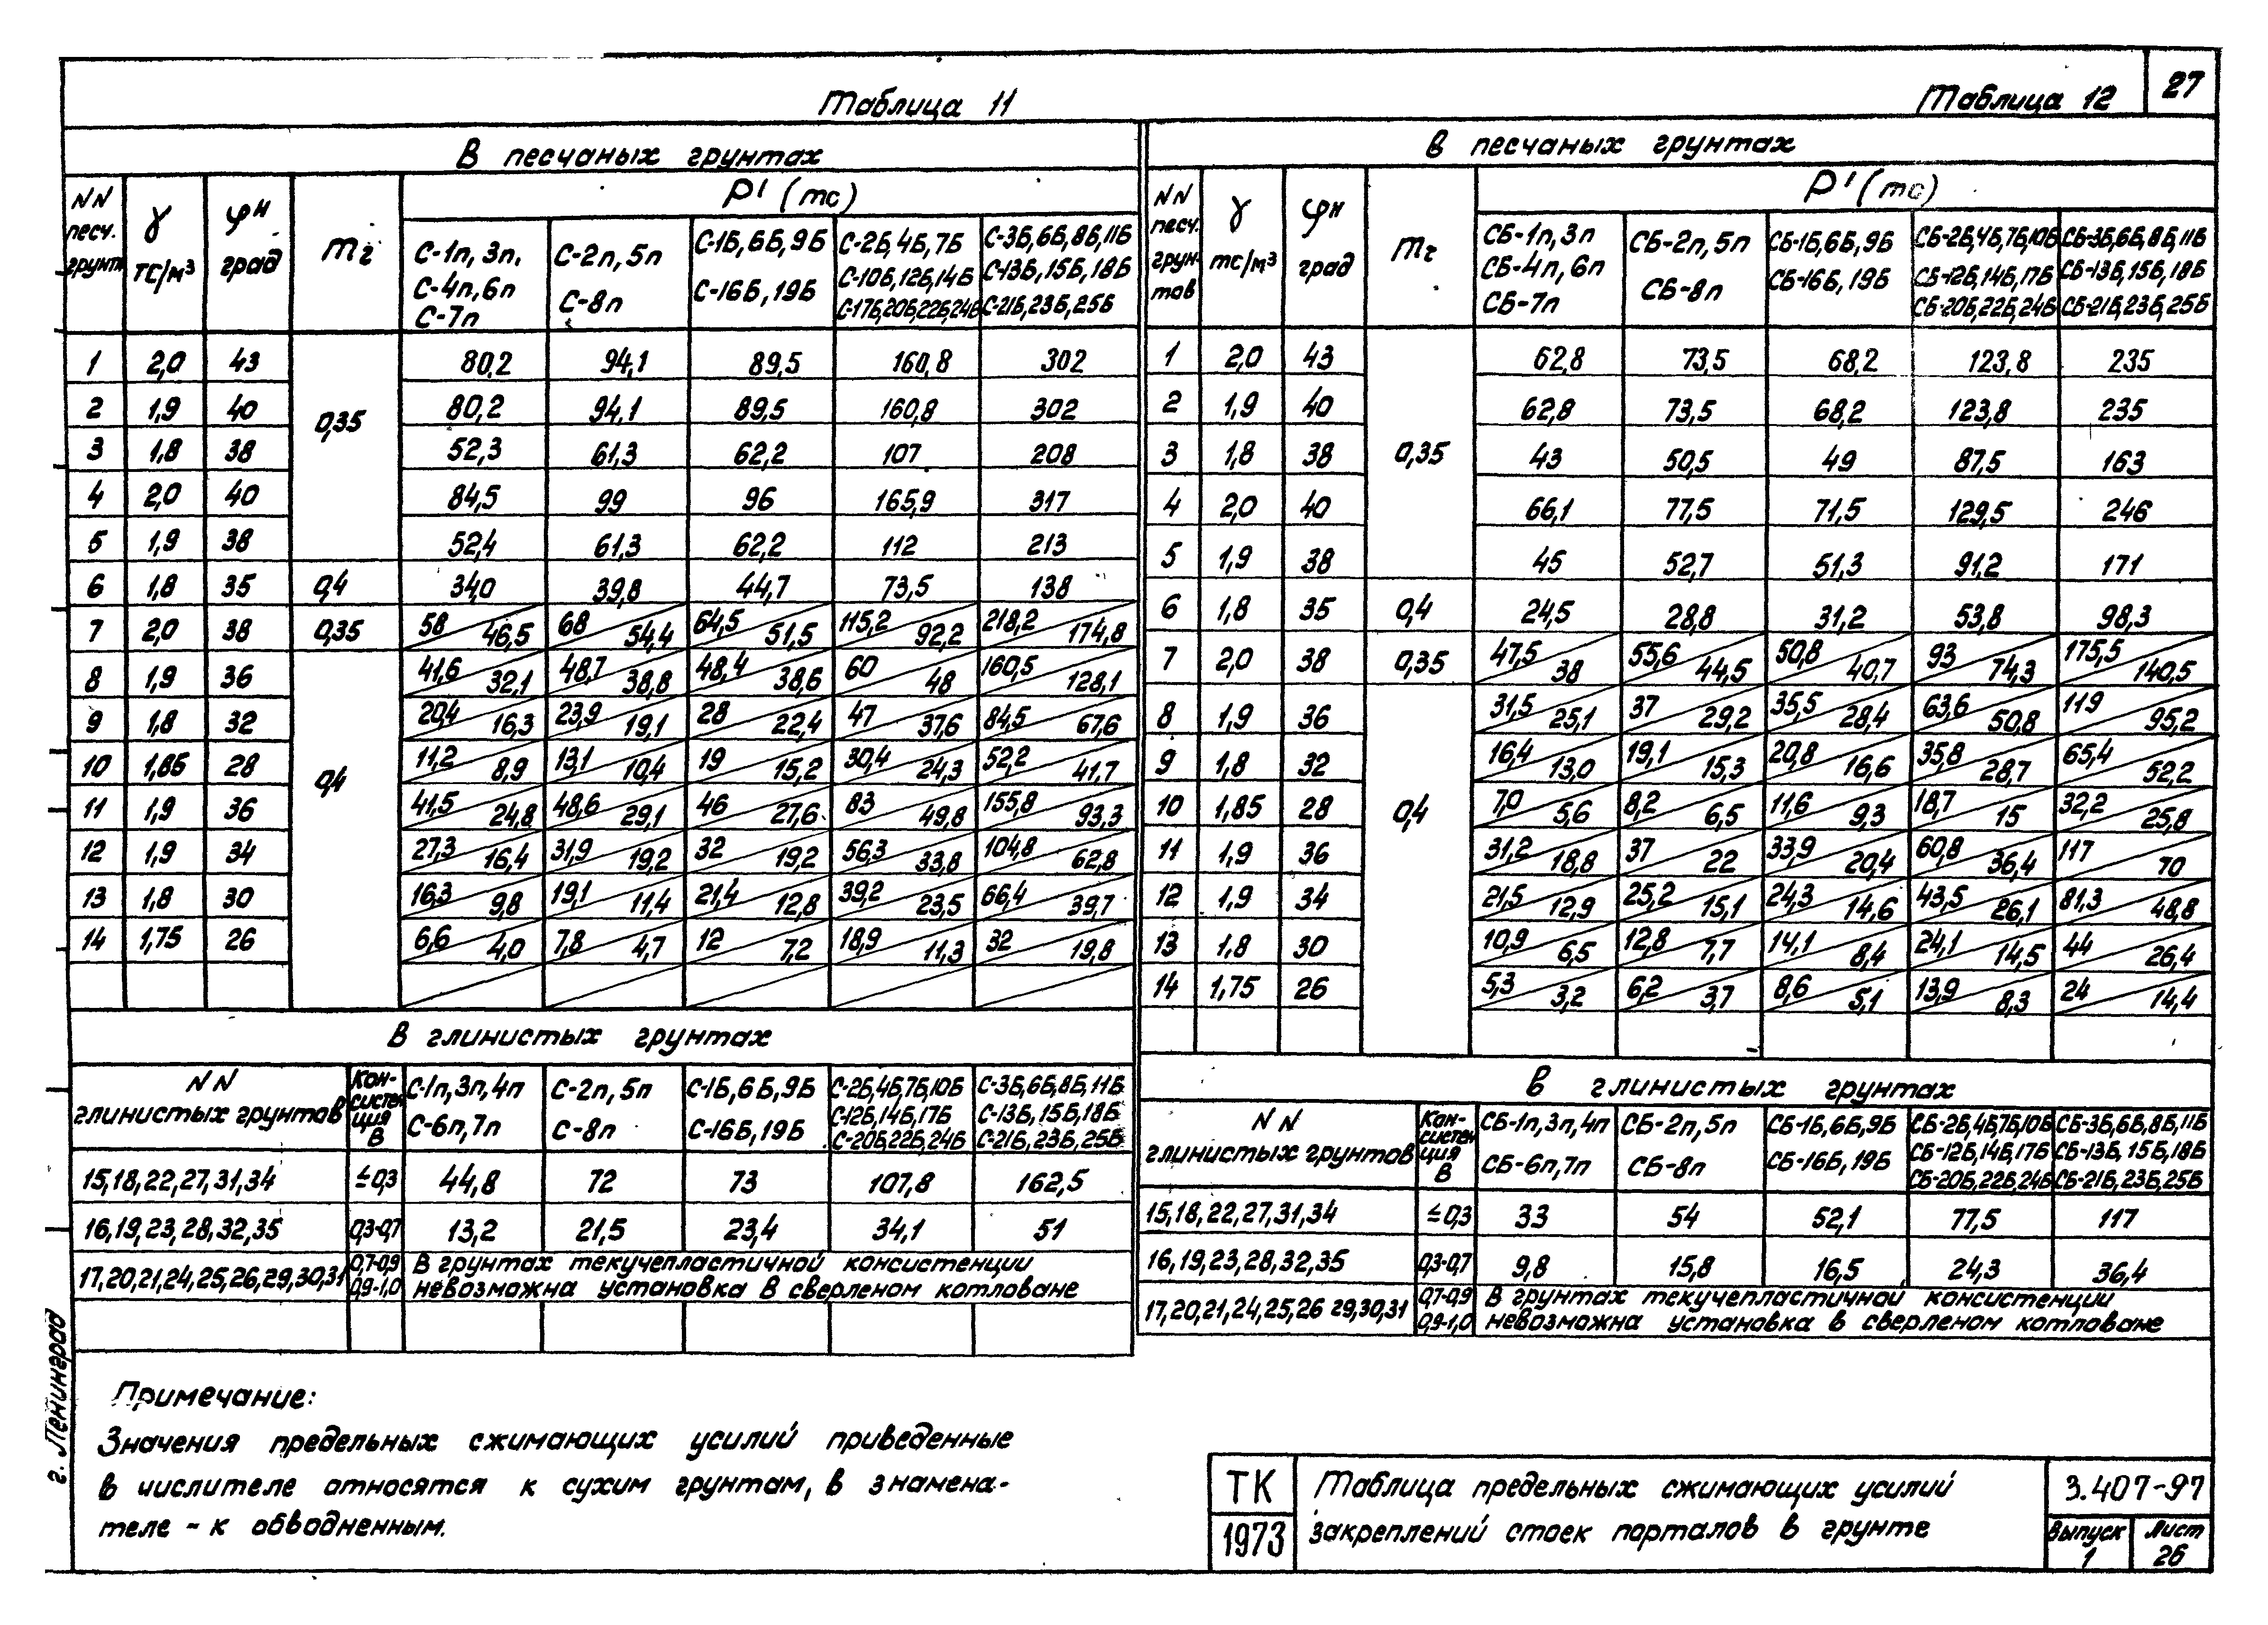 27
Таблица 11
В песчаных грунтах
NN песч. грунт. γ ТС/м³ φн град mг Р' (тс)
С-1п, 3п, С-4п, 6п С-7п С-2п, 5п С-8п С-1Б, 6Б, 9Б С-16Б, 19Б С-2Б, 4Б, 7Б С-10Б, 12Б, 14Б С-17Б, 20Б, 22Б, 24Б С-3Б, 6Б, 8Б, 11Б С-13Б, 15Б, 18Б С-21Б, 23Б, 25Б
1 2,0 43 0,35 80,2 94,1 89,5 160,8 302
2 1,9 40 80,2 94,1 89,5 160,8 302
3 1,8 38 52,3 61,3 62,2 107 208
4 2,0 40 84,5 99 96 165,9 317
5 1,9 38 52,4 61,3 62,2 112 213
6 1,8 35 0,4 34,0 39,8 44,7 73,5 138
7 2,0 38 0,35 58/46,5 68/54,4 64,5/51,5 115,2/92,2 218,2/174,8
8 1,9 36 0,4 41,6/32,1 48,7/38,8 48,4/38,6 60/48 160,5/128,1
9 1,8 32 20,4/16,3 23,9/19,1 28/22,4 47/37,6 84,5/67,6
10 1,85 28 11,2/8,9 13,1/10,4 19/15,2 30,4/24,3 52,2/41,7
11 1,9 36 41,5/24,8 48,6/29,1 46/27,6 83/49,8 155,8/93,3
12 1,9 34 27,3/16,4 31,9/19,2 32/19,2 56,3/33,8 104,8/62,8
13 1,8 30 16,3/9,8 19,1/11,4 21,4/12,8 39,2/23,5 66,4/39,7
14 1,75 26 6,6/4,0 7,8/4,7 12/7,2 18,9/11,3 32/19,8
В глинистых грунтах
NN глинистых грунтов Консистенция В С-1п, 3п, 4п С-6п, 7п С-2п, 5п С-8п С-1Б, 6Б, 9Б С-16Б, 19Б С-2Б, 4Б, 7Б, 10Б С-12Б, 14Б, 17Б С-20Б, 22Б, 24Б С-3Б, 6Б, 8Б, 11Б С-13Б, 15Б, 18Б С-21Б, 23Б, 25Б
15, 18, 22, 27, 31, 34 ≤0,3 44,8 72 73 107,8 162,5
16, 19, 23, 28, 32, 35 0,3-0,7 13,2 21,5 23,4 34,1 51
17, 20, 21, 24, 25, 26, 29, 30, 31 0,7-0,9 0,9-1,0 В грунтах текучепластичной консистенции
невозможна установка в сверленом котловане
Таблица 12
В песчаных грунтах
NN песч. грунтов γ тс/м³ φн град mг Р' (тс)
СБ-1п, 3п СБ-4п, 6п СБ-7п СБ-2п, 5п СБ-8п СБ-1Б, 6Б, 9Б СБ-16Б, 19Б СБ-2Б, 4Б, 7Б, 10Б СБ-12Б, 14Б, 17Б СБ-20Б, 22Б, 24Б СБ-3Б, 6Б, 8Б, 11Б СБ-13Б, 15Б, 18Б СБ-21Б, 23Б, 25Б
1 2,0 43 0,35 62,8 73,5 68,2 123,8 235
2 1,9 40 62,8 73,5 68,2 123,8 235
3 1,8 38 43 50,5 49 87,5 163
4 2,0 40 66,1 77,5 71,5 129,5 246
5 1,9 38 45 52,7 51,3 91,2 171
6 1,8 35 0,4 24,5 28,8 31,2 53,8 98,3
7 2,0 38 0,35 47,5/38 55,6/44,5 50,8/40,7 93/74,3 175,5/140,5
8 1,9 36 0,4 31,5/25,1 37/29,2 35,5/28,4 63,6/50,8 119/95,2
9 1,8 32 16,4/13,0 19,1/15,3 20,8/16,6 35,8/28,7 65,4/52,2
10 1,85 28 7,0/5,6 8,2/6,5 11,6/9,3 18,7/15 32,2/25,8
11 1,9 36 31,2/18,8 37/22 33,9/20,4 60,8/36,4 117/70
12 1,9 34 21,5/12,9 25,2/15,1 24,3/14,6 43,5/26,1 81,3/48,8
13 1,8 30 10,9/6,5 12,8/7,7 14,1/8,4 24,1/14,5 44/26,4
14 1,75 26 5,3/3,2 6,2/3,7 8,6/5,1 13,9/8,3 24/14,4
В глинистых грунтах
NN глинистых грунтов Консистенция В СБ-1п, 3п, 4п СБ-6п, 7п СБ-2п, 5п СБ-8п СБ-1Б, 6Б, 9Б СБ-16Б, 19Б СБ-2Б, 4Б, 7Б, 10Б СБ-12Б, 14Б, 17Б СБ-20Б, 22Б, 24Б СБ-3Б, 6Б, 8Б, 11Б СБ-13Б, 15Б, 18Б СБ-21Б, 23Б, 25Б
15, 18, 22, 27, 31, 34 ≤0,3 33 54 52,1 77,5 117
16, 19, 23, 28, 32, 35 0,3-0,7 9,8 15,8 16,5 24,3 36,4
17, 20, 21, 24, 25, 26 29, 30, 31 0,7-0,9 0,9-1,0 В грунтах текучепластичной консистенции
невозможна установка в сверленом котловане
г. Ленинград
Примечание:
Значения предельных сжимающих усилий приведенные
в числителе относятся к сухим грунтам, в знамена-
теле - к обводненным.
ТК
1973
Таблица предельных сжимающих усилий
закреплений стоек порталов в грунте
3.407-97
выпуск 1
лист 26